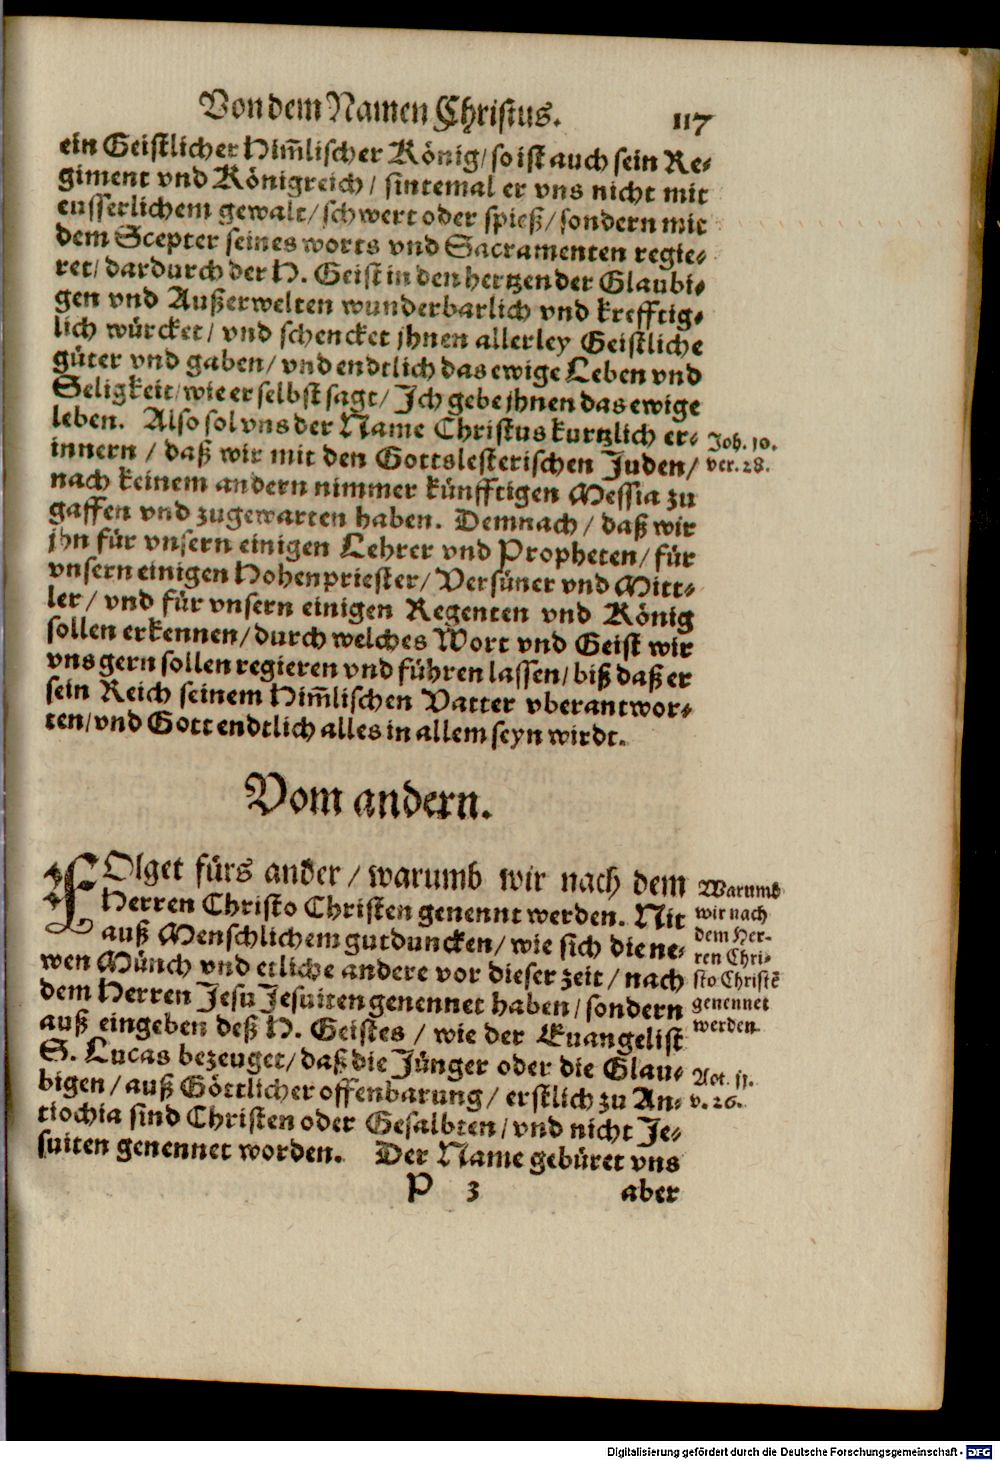 Von dem Namen Christus. 117
ein Geistlicher Him̃lischer König/ so ist auch sein Re-
giment vnd Königreich/ sintemal er vns nicht mit
eusserlichem gewalt/ schwert oder spieß/ sondern mit
dem Scepter seines worts vnd Sacramenten regie-
ret/ dardurch der H. Geist in den hertzen der Glaubi-
gen vnd Außerwelten wunderbarlich vnd krefftig-
lich würcket/ vnd schencket jhnen allerley Geistliche
güter vnd gaben/ vnd endtlich das ewige Leben vnd
Seligkeit/ wie er selbst sagt/ Ich gebe jhnen das ewige
leben. Also sol vns der Name Christus kurtzlich er-
innern/ daß wir mit den Gottslesterischen Juden/
nach keinem andern nimmer künfftigen Messia zu
gaffen vnd zugewarten haben. Demnach/ daß wir
jhn für vnsern einigen Lehrer vnd Propheten/ für
vnsern einigen Hohenpriester/ Versüner vnd Mitt-
ler/ vnd für vnsern einigen Regenten vnd König
sollen erkennen/ durch welches Wort vnd Geist wir
vns gern sollen regieren vnd führen lassen/ biß daß er
sein Reich seinem Him̃lischen Vatter vberantwor-
ten/ vnd Gott endtlich alles in allem seyn wirdt.
Joh. 10.
ver. 28.
Vom andern.
FOlget fürs ander/ warumb wir nach dem
Herren Christo Christen genennt werden. Nit
auß Menschlichem gutduncken/ wie sich die ne-
wen Münch vnd etliche andere vor dieser zeit/ nach
dem Herren Jesu Jesuiten genennet haben/ sondern
auß eingeben deß H. Geistes/ wie der Euangelist
S. Lucas bezeuget/ daß die Jünger oder die Glau-
bigen/ auß Göttlicher offenbarung/ erstlich zu An-
tiochia sind Christen oder Gesalbten/ vnd nicht Je-
suiten genennet worden. Der Name gebüret vns
Warumb
wir nach
dem Her-
ren Chri-
sto Christē
genennet
werden.
Act. 11.
v. 26.
P 3 aber
Digitalisierung gefördert durch die Deutsche Forschungsgemeinschaft - DFG